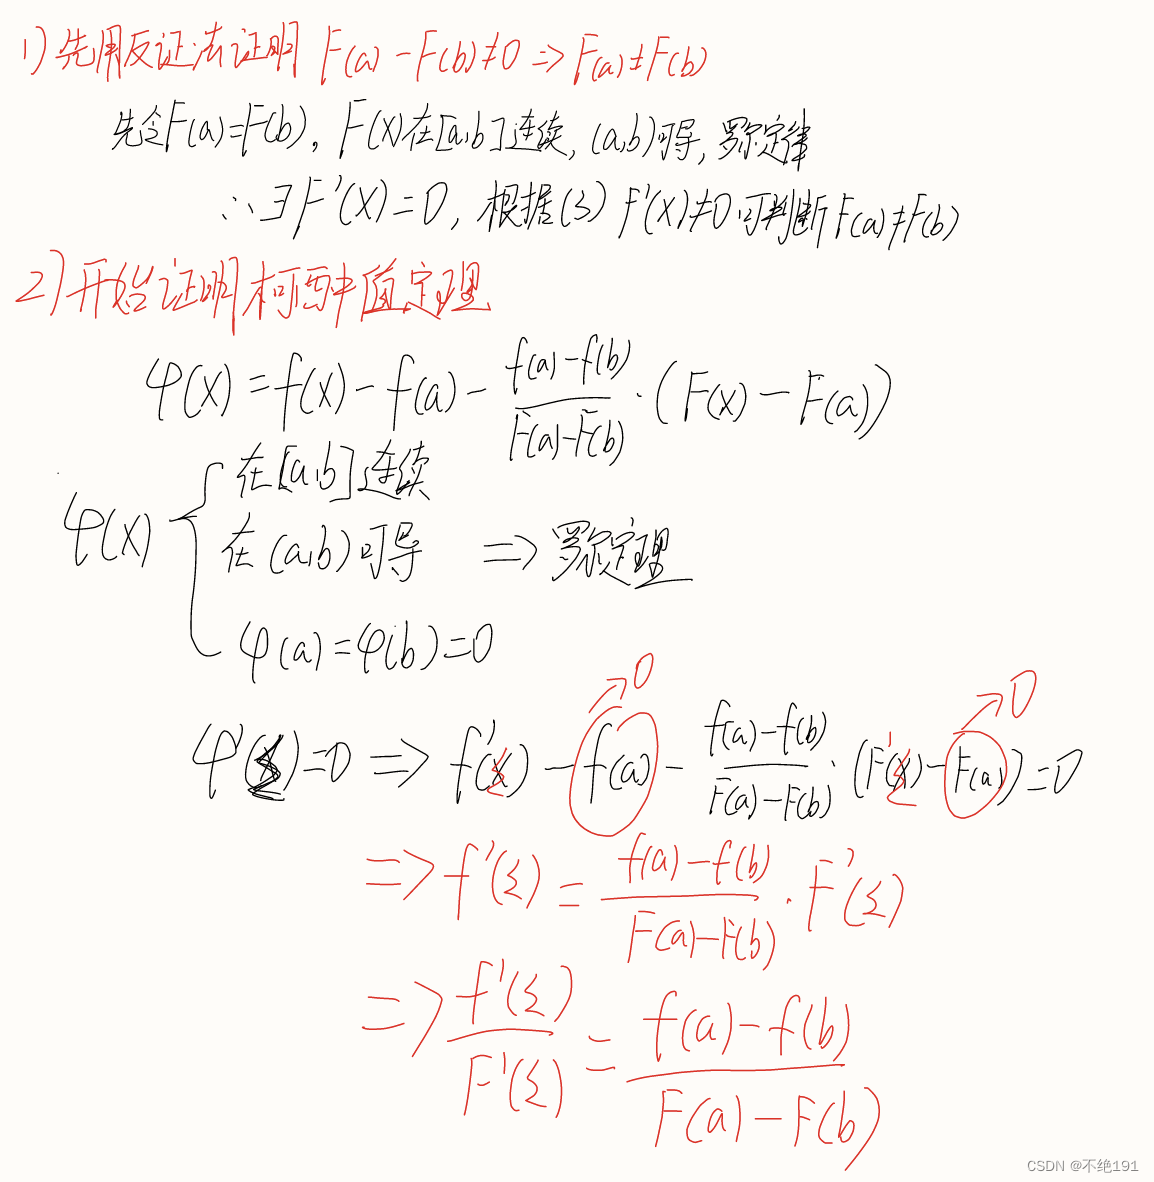 1) 先用反证法证明 F(a)-F(b)≠0 => F(a)≠F(b)
先令F(a)=F(b), F(x)在[a,b]连续, (a,b)可导, 罗尔定律
∴∃F'(x)=0, 根据(3) F'(x)≠0可判断F(a)≠F(b)
2) 开始证明柯西中值定理
φ(x)=f(x)-f(a)-\frac{f(a)-f(b)}{F(a)-F(b)}·(F(x)-F(a))
在[a,b]连续
φ(x) { 在(a,b)可导 => 罗尔定理
φ(a)=φ(b)=0
→0 →0
φ'(ξ)=0 => f'(ξ)-f(a)-\frac{f(a)-f(b)}{F(a)-F(b)}·(F'(ξ)-F(a))=0
=> f'(ξ)=\frac{f(a)-f(b)}{F(a)-F(b)}·F'(ξ)
=> \frac{f'(ξ)}{F'(ξ)}=\frac{f(a)-f(b)}{F(a)-F(b)}
CSDN @不绝191